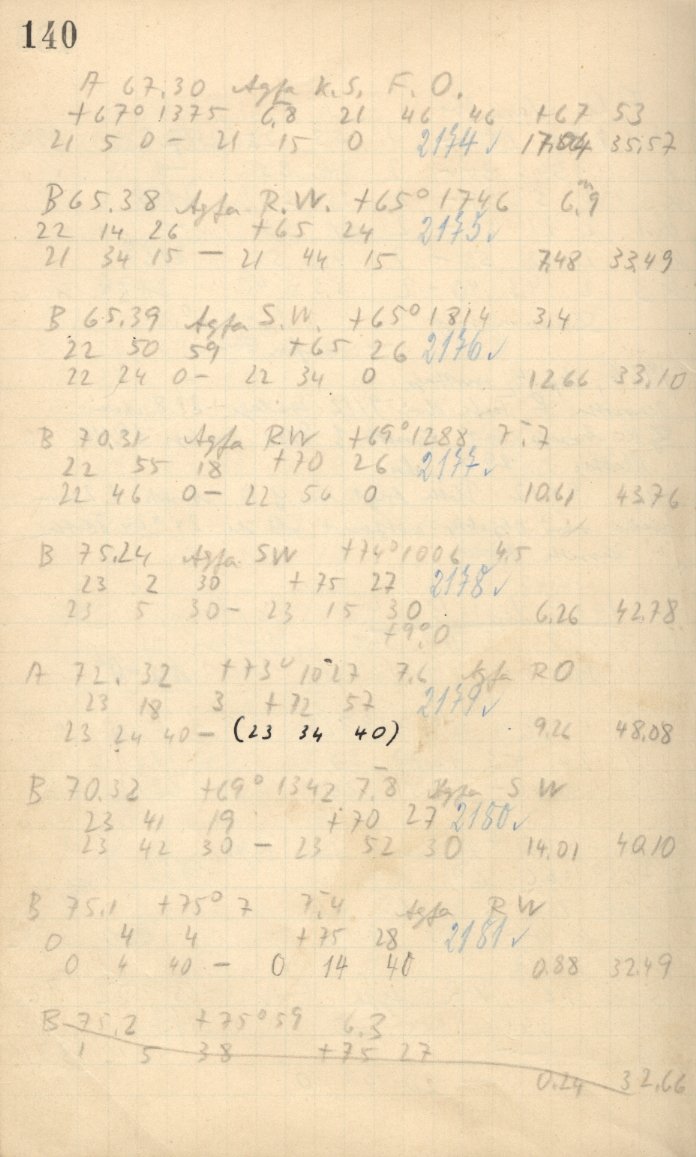 140
A 67.30 Agfa K.S. F.O.
+67° 1375 6.8 21 46 46 +67 53
21 5 0 – 21 15 0 2174 ✓ 35.57
B 65.38 Agfa R.W. +65° 1746 6.9
22 14 26 +65 24 2175 ✓
21 34 15 – 21 44 15 7.48 33.49
B 65.39 Agfa S.W. +65° 1814 3.4
22 50 59 +65 26 2176 ✓
22 24 0 – 22 34 0 12.66 33.10
B 70.31 Agfa RW +69° 1288 7.7
22 55 18 +70 26 2177 ✓
22 46 0 – 22 56 0 10.61 43.76
B 75.24 Agfa SW +74° 1006 4.5
23 2 30 +75 27 2178 ✓
23 5 30 – 23 15 30 6.26 42.78
+9° 0
A 72.32 +73° 1027 7.6 Agfa RO
23 18 3 +72 57 2179 ✓
23 24 40 – (23 34 40) 9.26 48.08
B 70.32 +69° 1342 7.8 Agfa S W
23 41 19 +70 27 2180 ✓
23 42 30 – 23 52 30 14.01 40.10
B 75.1 +75° 7 7.4 Agfa RW
0 4 4 +75 28 2181 ✓
0 4 40 – 0 14 40 0.88 32.49
B 75.2 +75° 59 6.3
1 5 38 +75 27
0.24 32.66